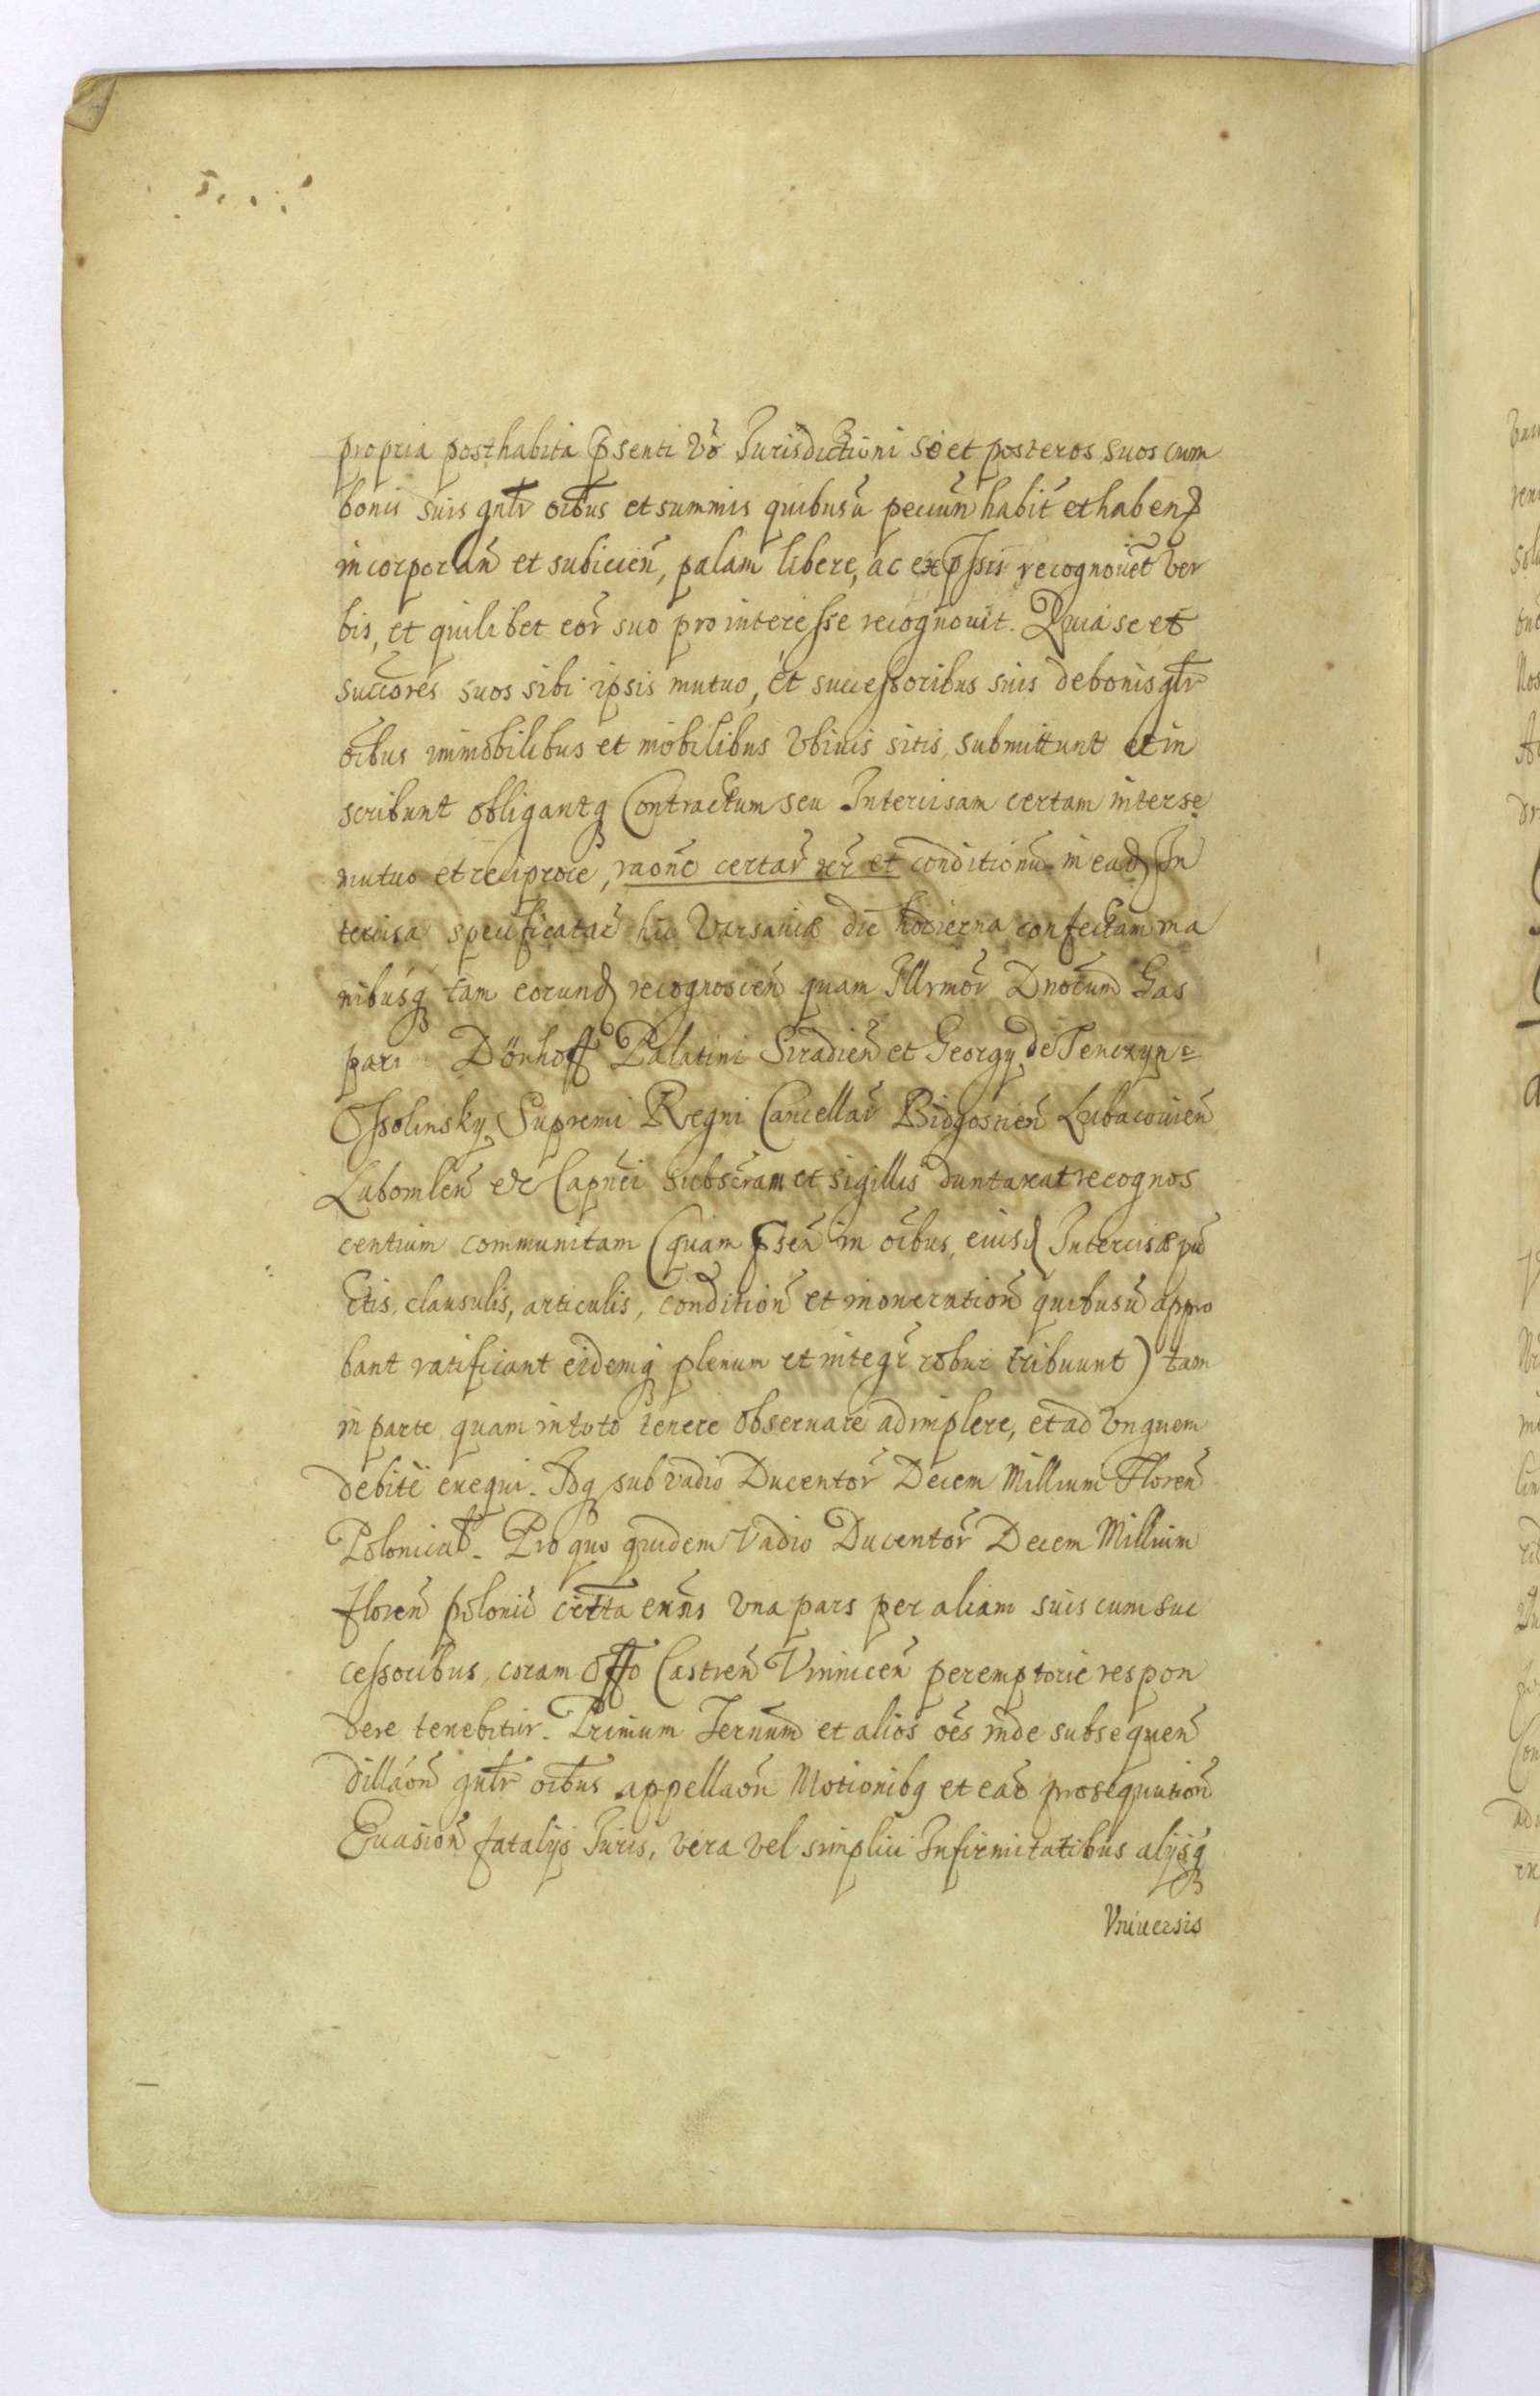 propria posthabita p̃senti vō Jurisdictioni se et posteros suos cum
bonis suis gn̄lr oībus et summis quibusū pecun̄ habit̄ et haben̄
incorporan̄ et subicien̄, palam libere, ac exp̄ssis recognouēt ver
bis, et quilibet eor̄ suo pro interesse recognouit. Quia se et
succōres suos sibi ipsis mutuo, et successoribus suis de bonis gn̄lr
oībus immobilibus et mobilibus vbiuis sitis, submittunt et in
scribunt obligantq Contractum seu Intercisam certam inter se
mutuo et reciproce, raōne certar̄ rer̄ et conditionū in ead In
tercisa specificatar̄ hic Varsaviæ die hodierna confectam ma
nibusq tam eorund recognoscen̄ quam Illrmor̄ Dnōrum Gas
pari Dönhoff Palatini Siradien̄ et Georgy de Tenczyn=
Ossolinsky Supremi Regni Cancellar̄ Bidgostien̄ Lubaczouien̄
Lubomlen̄ etc Capn̄ei subscr̄am et sigillis duntaxat recognos
centium communitam (quam p̄sen̄ in oībus, eiusd Intercisæ pū
ctis, clausulis, articulis, condition̄ et inoneration̄ quibusū appro
bant ratificant eidemq plenum et integr̄ robur tribuunt) tam
in parte quam in toto tenere obseruare adimplere, et ad vnguem
debite exequi. Idq sub vadio Ducentor̄ Decem Millium Floren̄
Polonical. Pro quo quidem Vadio Ducentor̄ Decem Millium
floren̄ polonic̄ citta exn̄s vna pars per aliam suis cum suc
cessoribus, coram Offo Castren̄ Vinnicen̄ peremptorie respon
dere tenebitur. Primum Termum et alios oēs inde subsequen̄
dillāon̄ gn̄lr oībus appellaōn Motionibq et ear̄ prosequution̄
Euasion̄ fatalijs Juris, vera vel simplici Infirmitatibus alijsq
Vniuersis